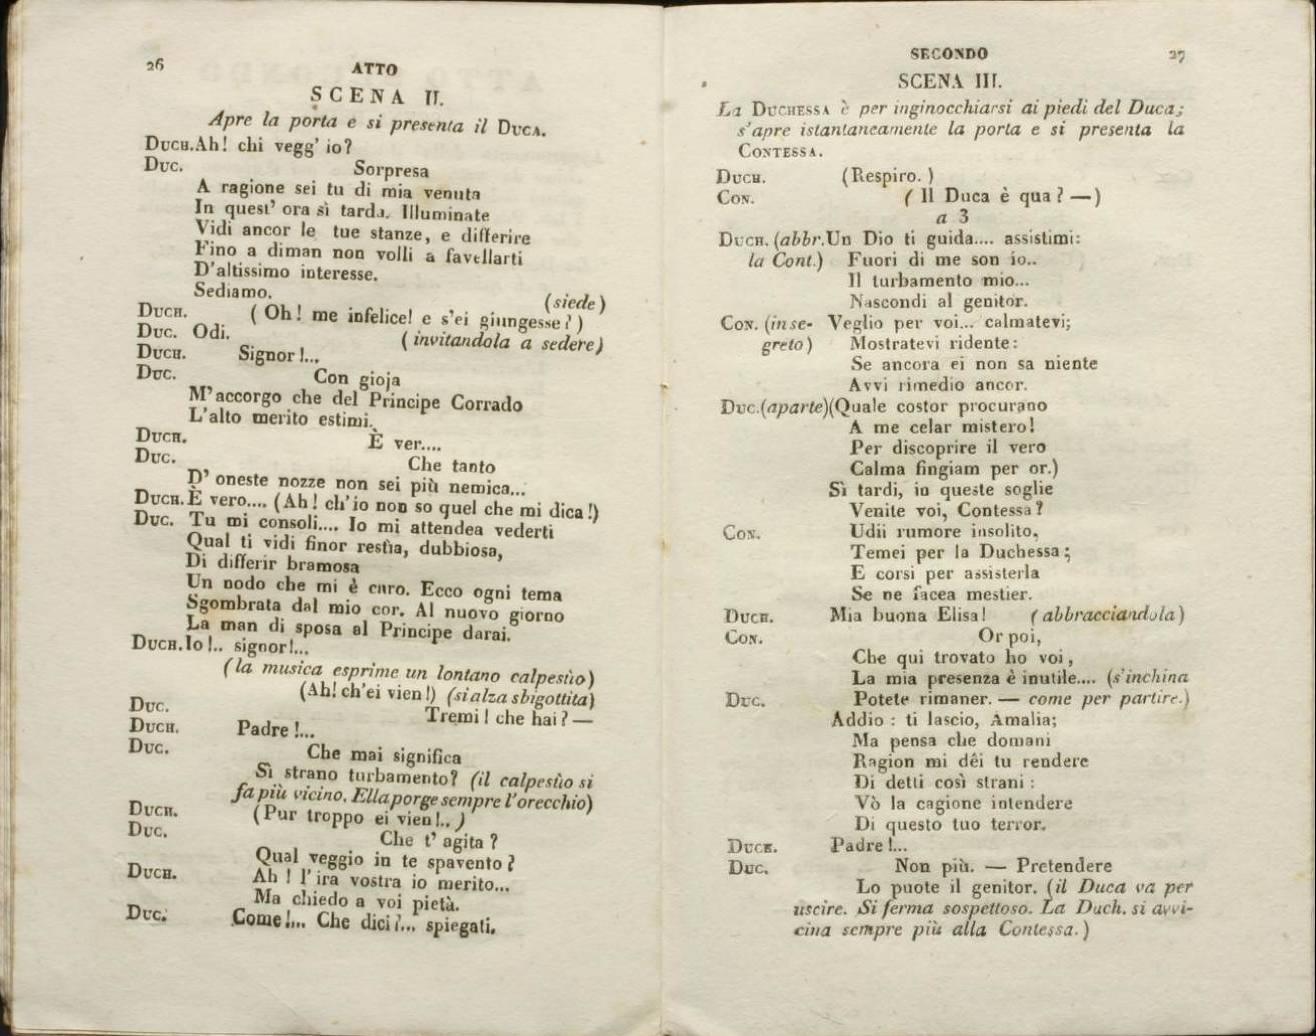 26
ATTO
SCENA II.
Apre la porta e si presenta il DUCA.
DUCH. Ah! chi vegg' io?
DUC. Sorpresa
A ragione sei tu di mia venuta
In quest' ora sì tarda. Illuminate
Vidi ancor le tue stanze, e differire
Fino a diman non volli a favellarti
D'altissimo interesse.
Sediamo. (siede)
DUCH. (Oh! me infelice! e s'ei giungesse?)
DUC. Odi. (invitandola a sedere)
DUCH. Signor!...
DUC. Con gioja
M'accorgo che del Principe Corrado
L'alto merito estimi.
DUCH. È ver....
DUC. Che tanto
D' oneste nozze non sei più nemica...
DUCH. È vero.... (Ah! ch'io non so quel che mi dica!)
DUC. Tu mi consoli.... Io mi attendea vederti
Qual ti vidi finor restìa, dubbiosa,
Di differir bramosa
Un nodo che mi è caro. Ecco ogni tema
Sgombrata dal mio cor. Al nuovo giorno
La man di sposa al Principe darai.
DUCH. Io!.. signor!...
(la musica esprime un lontano calpestìo)
(Ah! ch'ei vien!) (si alza sbigottita)
DUC. Tremi! che hai? —
DUCH. Padre!...
DUC. Che mai significa
Sì strano turbamento? (il calpestìo si
fa più vicino. Ella porge sempre l'orecchio)
DUCH. (Pur troppo ei vien!..)
DUC. Che t' agita?
Qual veggio in te spavento?
DUCH. Ah! l' ira vostra io merito...
Ma chiedo a voi pietà.
DUC. Come!... Che dici?... spiegati.
SECONDO
27
SCENA III.
La DUCHESSA è per inginocchiarsi ai piedi del Duca;
s'apre istantaneamente la porta e si presenta la
CONTESSA.
DUCH. (Respiro.)
CON. (Il Duca è qua? —)
a 3
DUCH. (abbr. Un Dio ti guida.... assistimi:
la Cont.) Fuori di me son io..
Il turbamento mio...
Nascondi al genitor.
CON. (in se- Veglio per voi... calmatevi;
greto) Mostratevi ridente:
Se ancora ei non sa niente
Avvi rimedio ancor.
DUC. (aparte) (Quale costor procurano
A me celar mistero!
Per discoprire il vero
Calma fingiam per or.)
Sì tardi, in queste soglie
Venite voi, Contessa?
CON. Udii rumore insolito,
Temei per la Duchessa;
E corsi per assisterla
Se ne facea mestier.
DUCH. Mia buona Elisa! (abbracciandola)
CON. Or poi,
Che qui trovato ho voi,
La mia presenza è inutile.... (s'inchina
DUC. Potete rimaner. — come per partire.)
Addio: ti lascio, Amalia;
Ma pensa che domani
Ragion mi dêi tu rendere
Di detti così strani:
Vò la cagione intendere
Di questo tuo terror.
DUCH. Padre!...
DUC. Non più. — Pretendere
Lo puote il genitor. (il Duca va per
uscire. Si ferma sospettoso. La Duch. si avvi-
cina sempre più alla Contessa.)